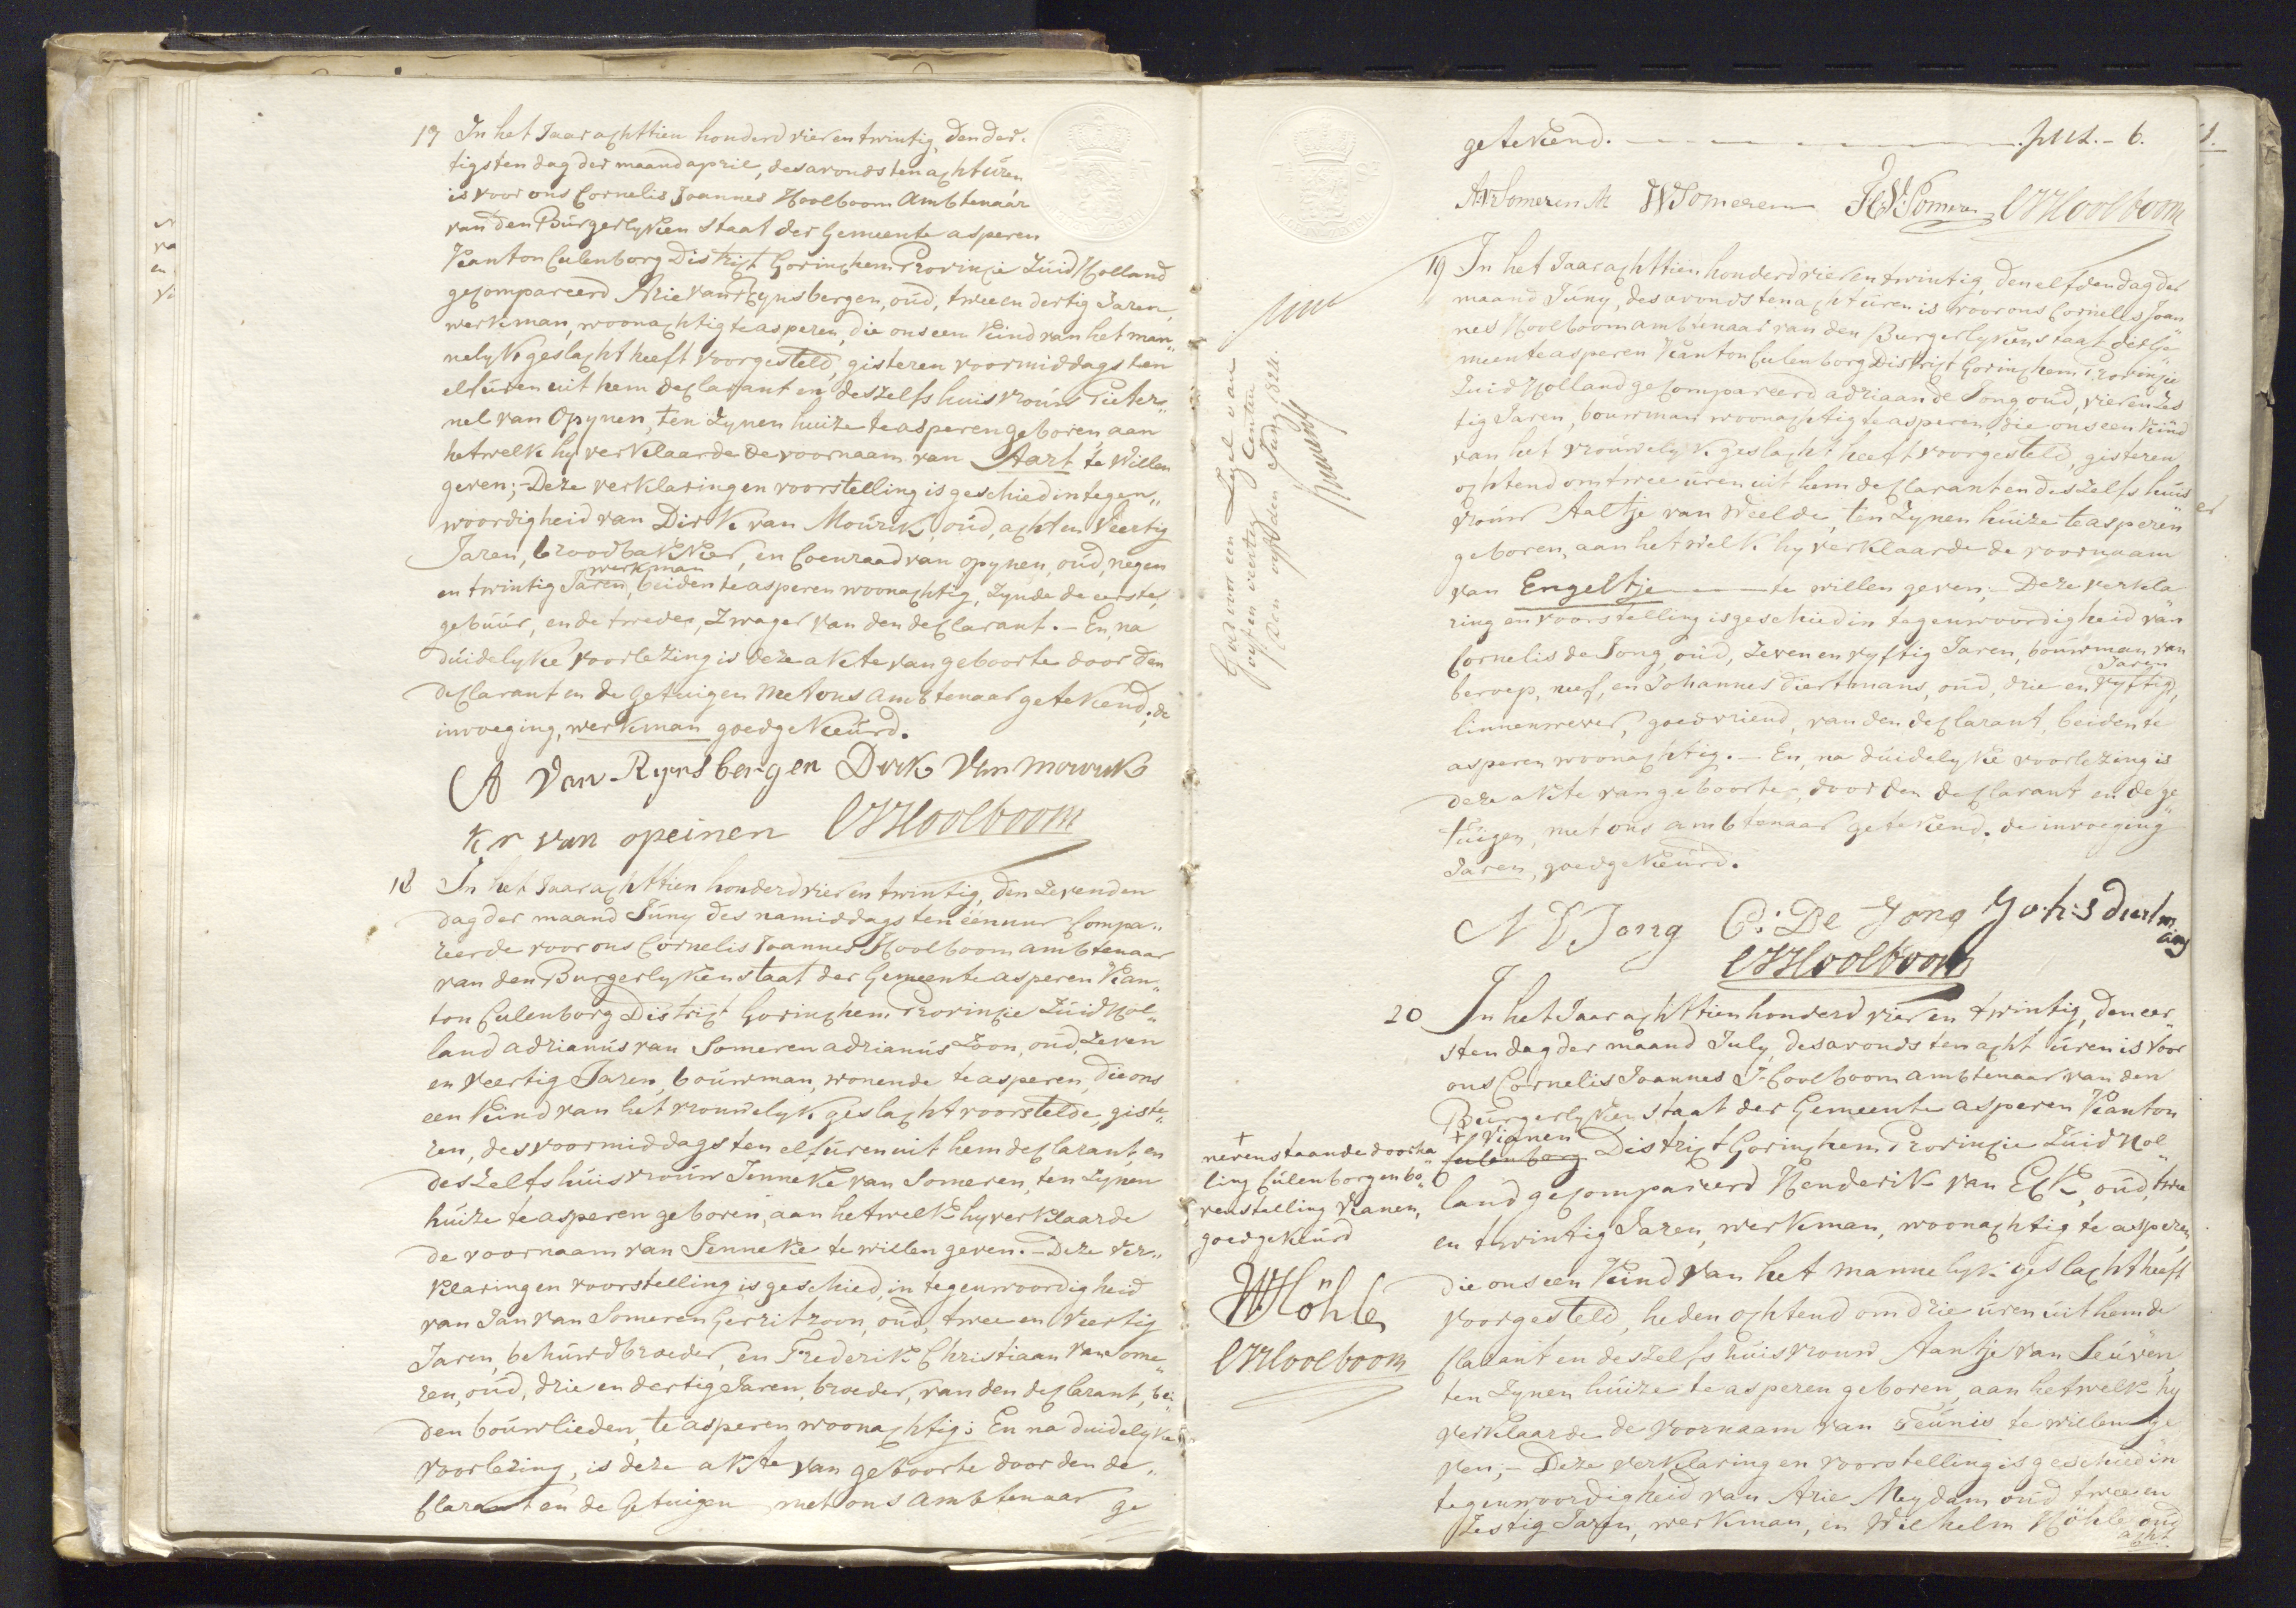 17 In het Jaar achttien honderd vier en twintig, den der-
tigsten dag der maand april, des avonds ten acht uren
is voor ons Cornelis Joannes Hoolboom Ambtenaar
van den Burgerlyken staat der Gemeente asperen
Kanton Culenborg District Gorinchem Provincie Zuid Holland
gecompareerd Arie van Rynsbergen, oud, twee en dertig Jaren,
werkman, woonachtig te asperen, die ons een kind van het man„
nelyk geslacht heeft voorgesteld, gisteren voormiddags ten
elf uren uit hem declarant en deszelfs huisvrouw Pieter„
nel van Opynen, ten zynen huize te asperen geboren, aan
hetwelk hy verklaarde de voornaam van Aart te willen
geven; - Deze verklaring en voorstelling is geschied in tegen„
woordigheid van Dirk van Mourik, oud, acht en veertig
Jaren, broodbakker, en Coenraad van opynen, oud, negen
werkman
en twintig Jaren, beiden te asperen woonachtig, zynde de eerste,
gebuur, en de tweede, zwager van den declarant. - En, na
duidelyke voorlezing is deze akte van geboorte door den
declarant en de getuigen met ons Ambtenaar getekend, de
invoeging, werkman goedgekeurd.
A van Rynsbergen Dirk van mourik
Kr van opeinen CJHoolboom
18 In het Jaar achttien honderd vier en twintig, den zevenden
dag der maand Juny des namiddags ten een uur Compa„
reerde voor ons Cornelis Joannes Hoolboom ambtenaar
van den Burgerlyken staat der Gemeente asperen Kan„
ton Culenborg District Gorinchem Provincie Zuid Hol„
land adrianus van Someren adrianus Zoon, oud, zeven
en veertig Jaren, bouwman, wonende te asperen, die ons
een kind van het vrouwelyk geslacht voorstelde, giste„
ren, des voormiddags ten elf uren uit hem declarant, en
deszelfs huisvrouw Jenneke van Someren, ten zynen
huize te asperen geboren, aan hetwelk hy verklaarde
de voornaam van Jenneke te willen geven. - Deze ver„
klaring en voorstelling is geschied, in tegenwoordigheid
van Jan van Someren Gerritzoon, oud, twee en veertig
Jaren, behuwdbroeder, en Frederik Christiaan van Some„
ren, oud, drie en dertig Jaren, broeder, van den declarant, bei„
den bouwlieden, te asperen woonachtig; En na duidelyke
voorlezing, is deze akte van geboorte door den de„
clarant en de getuigen met ons Ambtenaar ge
getekend. - - - - - - - - 6.
AVSomeren WVSomeren CJHoolboom
Gezien voor een Zegel van
vyf en veertig Centen
Den vyfden Juny 1824.
19 In het Jaar achttien honderd vier en twintig, den elfden dag der
maand Juny, des avonds ten acht uren is voor ons Cornelis Joan
nes Hoolboom ambtenaar van den Burgerlyken staat der Ge„
meente asperen Kanton Culenborg District Gorinchem Provincie
Zuid Holland gecompareerd adriaan de Jong oud, vier en zes
tig Jaren, bouwman woonachtig te asperen, die ons een kind
van het vrouwelyk geslacht heeft voorgesteld, gisteren
ochtend om twee uren uit hem declarant en deszelfs huis
vrouw Aaltje van Weelde, ten zynen huize te asperen
geboren, aan hetwelk hy verklaarde de voornaam
van Engeltje - - - te willen geven; - Deze verkla
ring en voorstelling is geschied in tegenwoordigheid van
Cornelis de Jong, oud, zeven en vyftig Jaren, bouwman van
Jaren
beroep, neef, en Johannes diertmans, oud, drie en vyftig,
linnenwever, goedvriend, van den declarant, beiden te
asperen woonachtig. - En, na duidelyke voorlezing is
deze akte van geboorte, door den declarant en de ge„
tuigen, met ons ambtenaar getekend. de invoeging
Jaren, goedgekeurd.
A D Jong C: De Jong Joh:s diertm
ans
CJHoolboom
20 In het Jaar achttien honderd vier en twintig, den eer„
sten dag der maand July, des avonds ten acht uren is voor
ons Cornelis Joannes Hoolboom ambtenaar van den
Burgerlyken staat der Gemeente asperen Kanton
+ Vianen
Culenborg District Gorinchem Provincie Zuid Hol„
land gecompareerd Hendrik van Eck, oud, twee
en twintig Jaren, werkman, woonachtig te asperen,
die ons een kind van het mannelyk geslacht heeft
voorgesteld, heden ochtend om drie uren uit hem de
clarant en deszelfs huisvrouw Aantje van Leuven,
ten zynen huize te asperen geboren, aan hetwelk hy
verklaarde de voornaam van Teunis te willen ge
ven; - Deze verklaring en voorstelling is geschied in
tegenwoordigheid van Arie Meydam oud, twee en
zestig Jaren, werkman, en Wilhelm Höhle oud
acht
+
nevenstaande doorha„
ling Culenborg en bo„
venstelling Vianen,
goedgekeurd
WHöhle
CJHoolboom